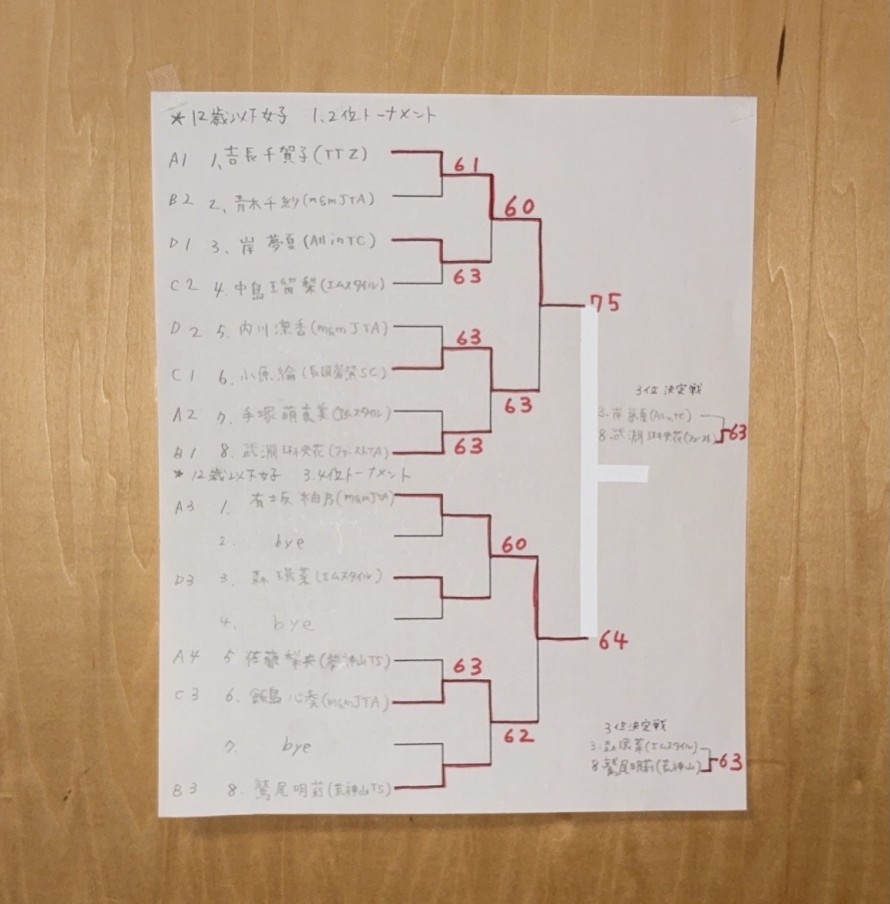 *12歳以下女子 1.2位トーナメント
A1 1、吉長千賀子(TTZ)
61
B2 2、青木千紗(mgmJTA)
60
D1 3、岸 夢夏(All in TC)
63
C2 4.中島 留梨(エムスタイル)
75
D2 5、内川潔香(mgmJTA)
63
C1 6.小原 SC)
63
A2 7.手塚萌 (エムスタイル)
63
B1 8.武淵 花(ファーストTA)
3位決定戦
3.岸 夢夏(All in TC)
8.武淵 花(ファースト)
63
*12歳以下女子 3.4位トーナメント
A3 1. 有坂柚乃(mgmJTA)
2. bye
60
D3 3. 森 瑛菜(エムスタイル)
4. bye
64
A4 5 佐藤梨央(荒神山TS)
63
C3 6.飯島心奏(mgmJTA)
62
7. bye
B3 8.鷲尾明莉(荒神山TS)
3位決定戦
3.森瑛菜(エムスタイル)
8.鷲尾明莉(荒神山)
63